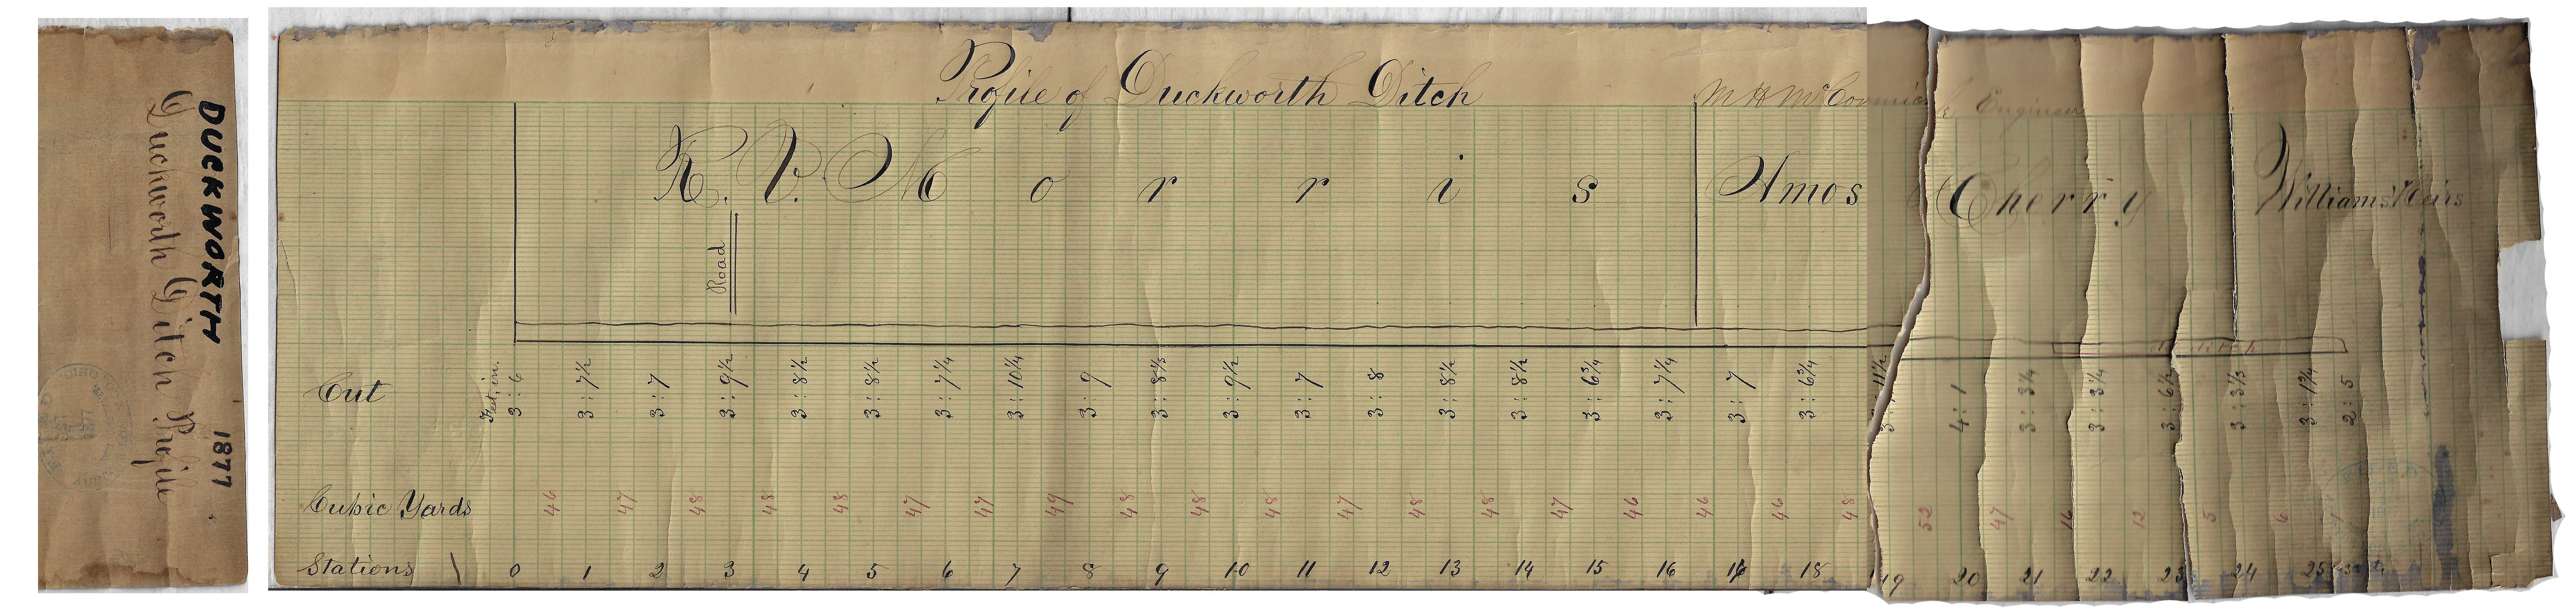 DUCKWORTH 1877
Duckworth Ditch Profile
Profile of Duckworth Ditch
M H McCormick Engineer
R. V. Morris
Amos Cherry
Williams Heirs
Road
Feet, in.
Cut 3:6 3:7½ 3:7 3:9½ 3:8½ 3:8½ 3:7¼ 3:10¼ 3:9 3:8⅓ 3:9½ 3:7 3:8 3:8½ 3:8½ 3:6¾ 3:7¼ 3:7 3:6¾ 3:11½ 4:1 3:3¼ 3:3¼ 3:6½ 3:3⅓ 3:1¾ 2:5
Cubic Yards 46 47 48 48 48 47 47 49 48 48 48 47 48 48 47 46 46 46 48 52 47 16 12 5 6 1
Stations 0 1 2 3 4 5 6 7 8 9 10 11 12 13 14 15 16 17 18 19 20 21 22 23 24 25